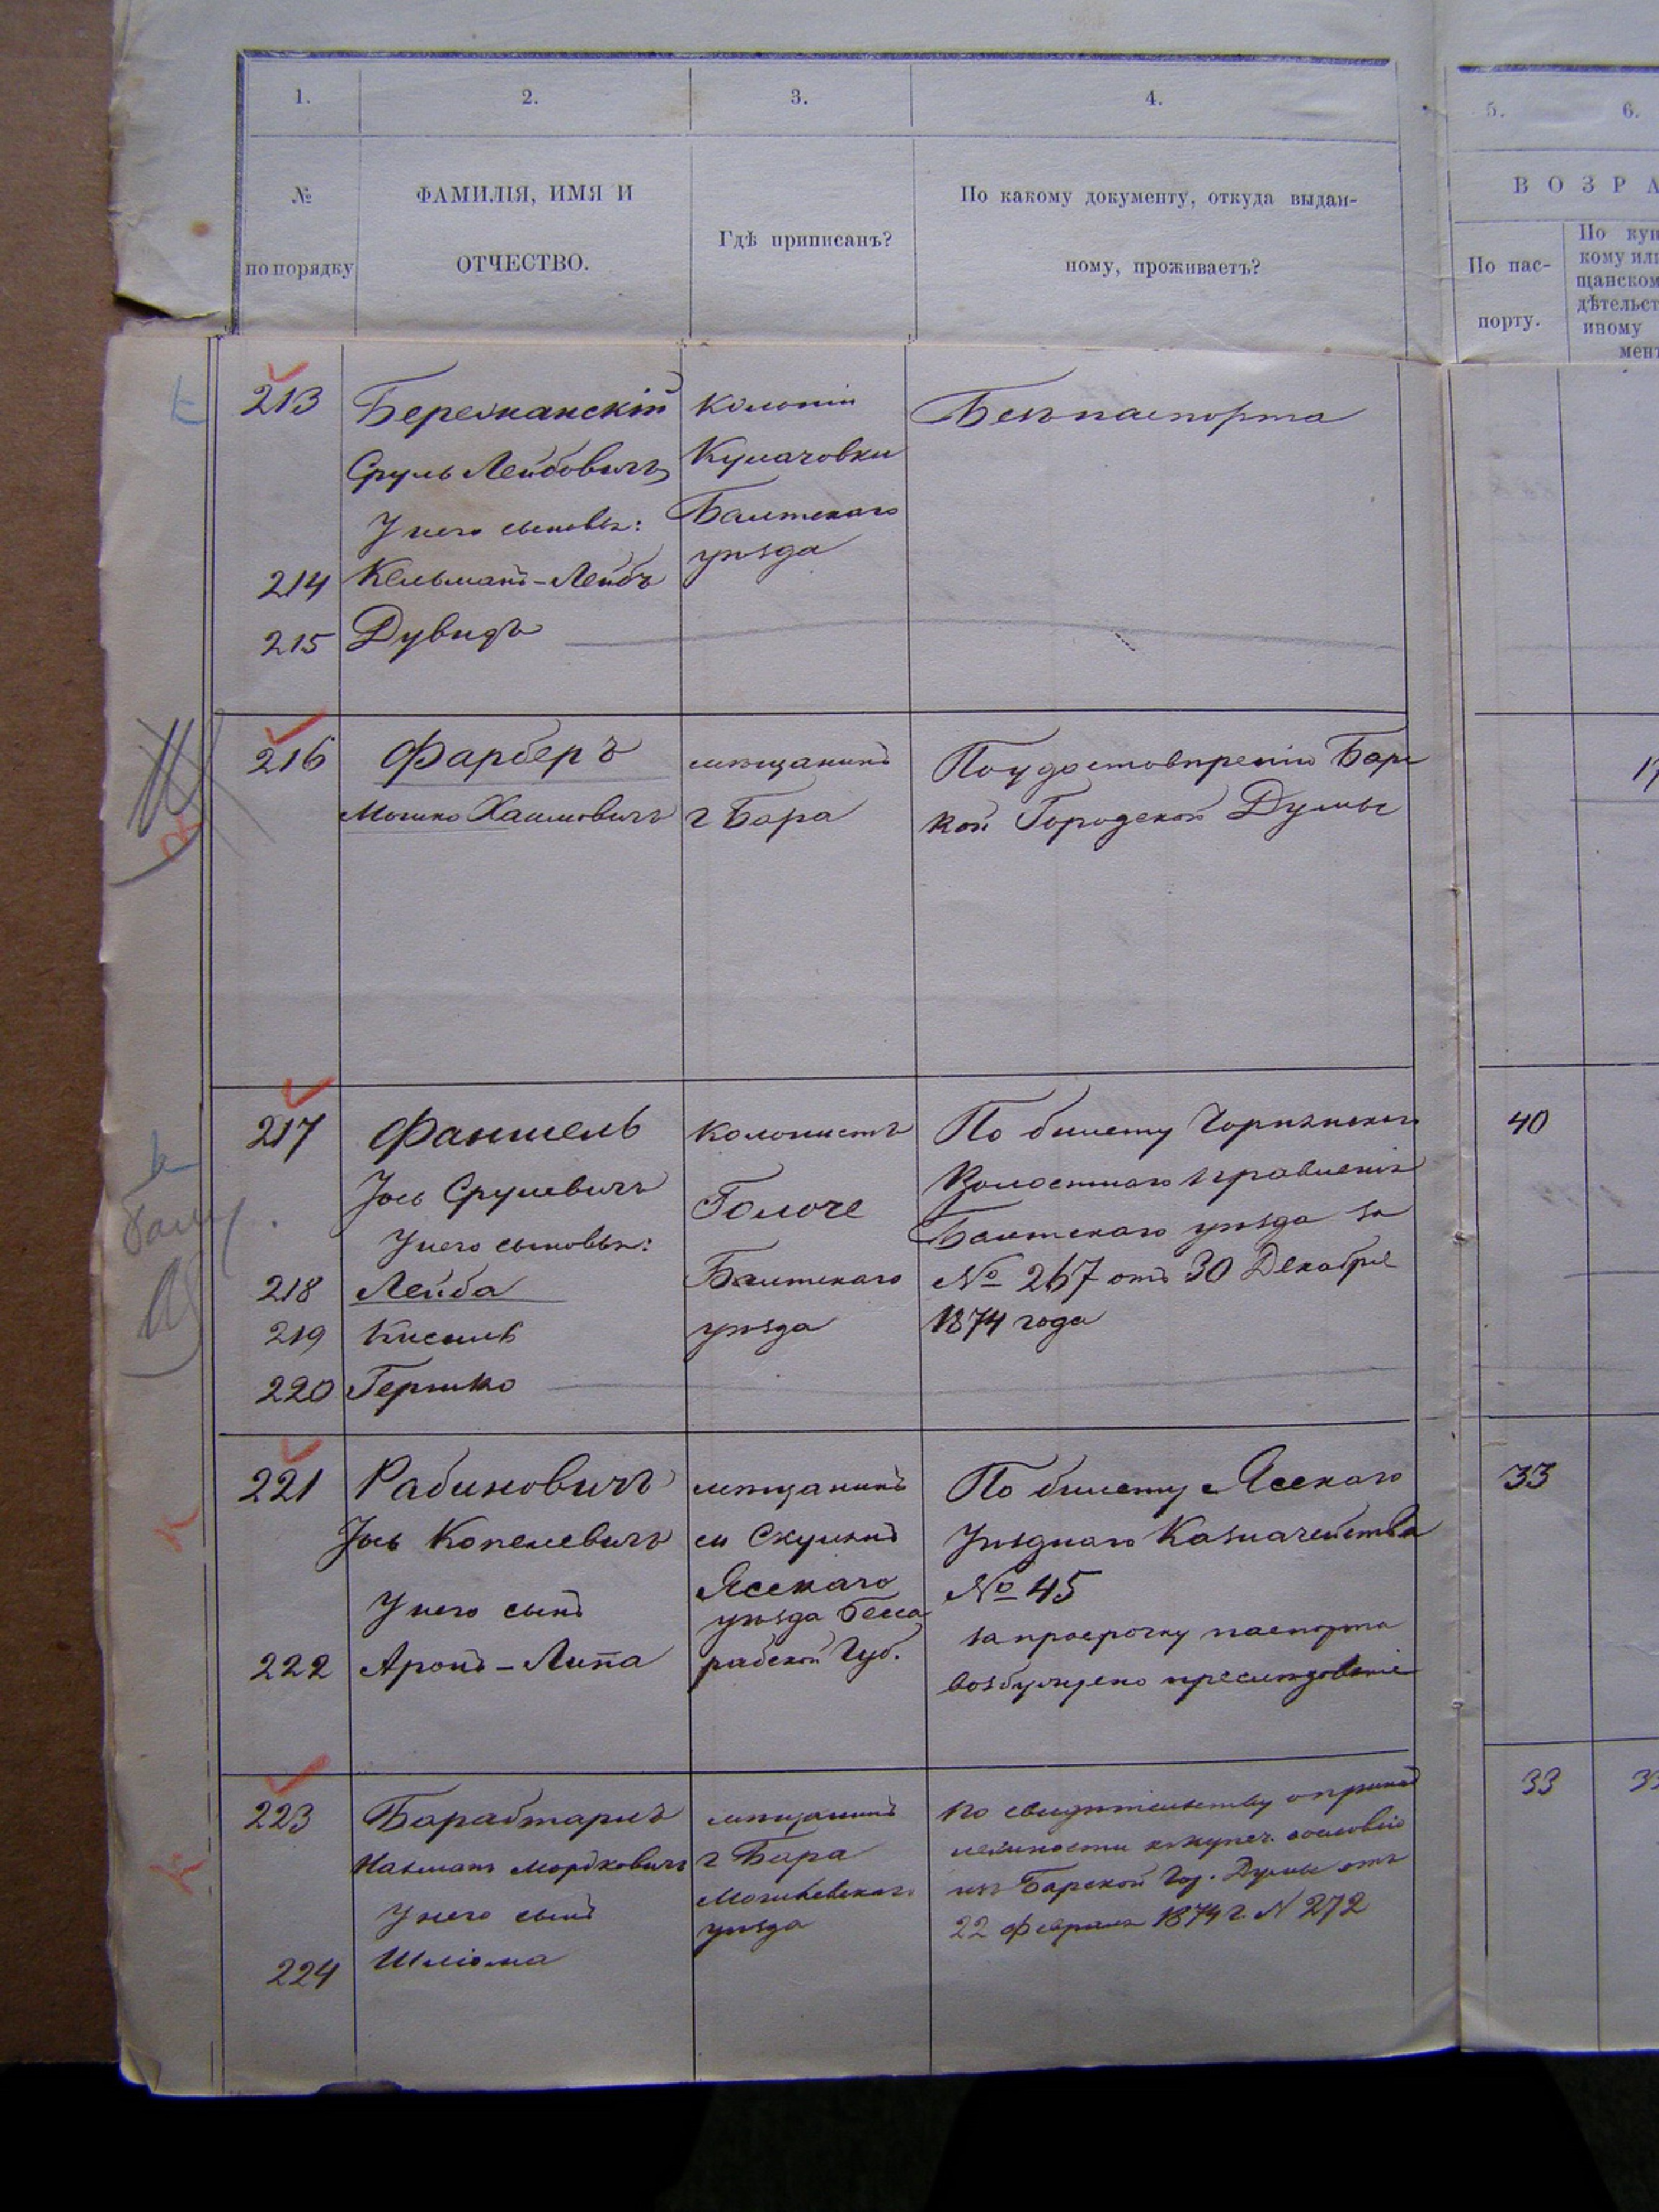 1. 2. 3. 4. 5. 6.
№ по порядку
ФАМИЛІЯ, ИМЯ И
ОТЧЕСТВО.
Гдѣ приписанъ?
По какому документу, откуда выдан-
ному, проживаетъ?
ВОЗРА
По пас-
порту.
По куп
кому или
щанском
дѣтельст
иному
мент
213 Бережанскій
Сруль Лейбовичъ
У него сыновья:
214 Кельманъ-Лейбъ
215 Дувидъ
Колоніи
Кулачовки
Балтскаго
уѣзда
Безъ паспорта
216 Фарберъ
Мошко Хаимовичъ
мѣщанинъ
г Бара
По удостовѣренію Барс
кой Городской Думы
217 Фаншель
Іось Срулевичъ
У него сыновья:
218 Лейба
219 Кисиль
220 Гершко
колонистъ
Голоче
Балтскаго
уѣзда
По билету
Волостнаго правленія
Балтскаго уѣзда за
№ 267 отъ 30 Декабря
1874 года
40
221 Рабиновичъ
Іось Копелевичъ
У него сынъ
222 Аронъ-Липа
мѣщанинъ
м Скулянъ
Ясскаго
уѣзда Бесса
рабской Губ.
По билету Ясскаго
Уѣзднаго Казначейства
№ 45
за просрочку паспорта
возбуждено преслѣдованіе
33
223 Барабтарлъ
Нахманъ Мордковичъ
У него сынъ
224 Шліома
мѣщанинъ
г Бара
Могилевскаго
уѣзда
По свидѣтельству о принад
лежности къ купеч. сословію
изъ Барской Гор. Думы отъ
22 февраля 1874 г. N 272
33